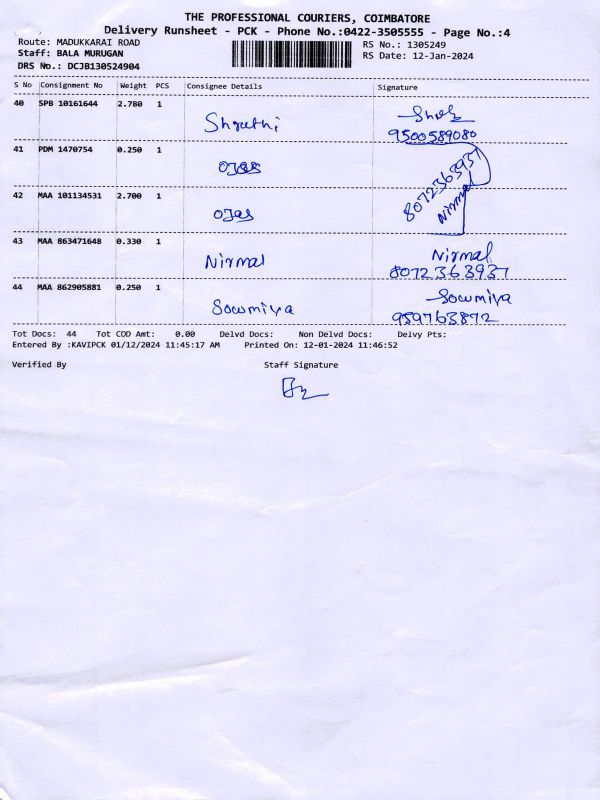 THE PROFESSIONAL COURIERS, COIMBATORE
Delivery Runsheet - PCK - Phone No.:0422-3505555 - Page No.:4
Route: MADUKKARAI ROAD RS No.: 1305249
Staff: BALA MURUGAN RS Date: 12-Jan-2024
DRS No.: DCJB130524904
S No Consignment No Weight PCS Consignee Details Signature
40 SPB 10161644 2.780 1
Shruthi 9500589080
41 PDM 1470754 0.250 1
ojas 8072363937
Nirmal
42 MAA 101134531 2.700 1
ojas
43 MAA 863471648 0.330 1
Nirmal Nirmal
8072363937
44 MAA 862905881 0.250 1
Sowmiya Sowmiya
959763872
Tot Docs: 44 Tot COD Amt: 0.00 Delvd Docs: Non Delvd Docs: Delvy Pts:
Entered By :KAVIPCK 01/12/2024 11:45:17 AM Printed On: 12-01-2024 11:46:52
Verified By Staff Signature